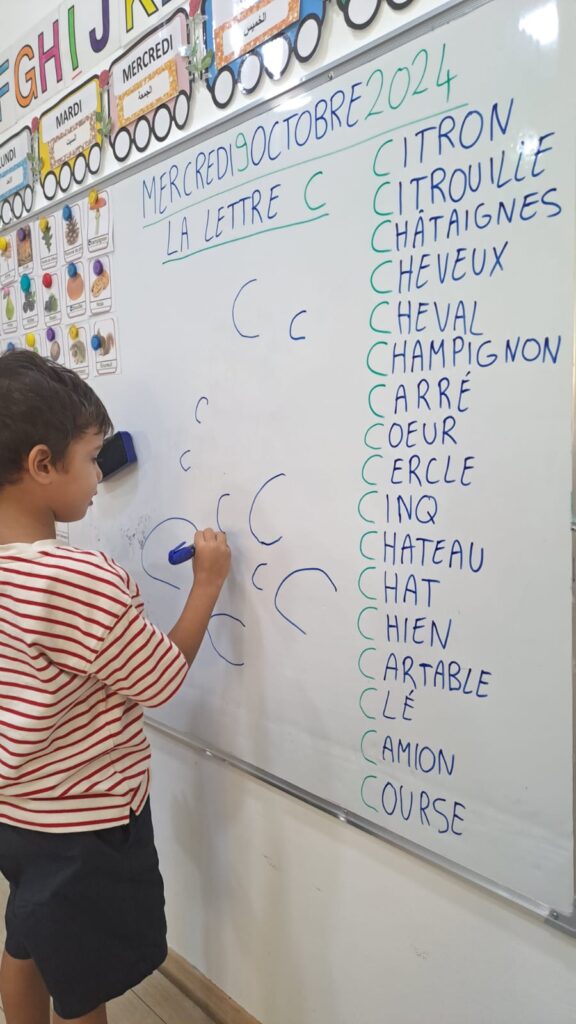 F G H I J K
LUNDI
MARDI
السبت
MERCREDI
الجمعة
الخميس
MERCREDI 9 OCTOBRE 2024
LA LETTRE C
C C
C
C
C C C
C C
C
CITRON
CITROUILLE
CHÂTAIGNES
CHEVEUX
CHEVAL
CHAMPIGNON
CARRÉ
COEUR
CERCLE
CINQ
CHATEAU
CHAT
CHIEN
CARTABLE
CLÉ
CAMION
COURSE